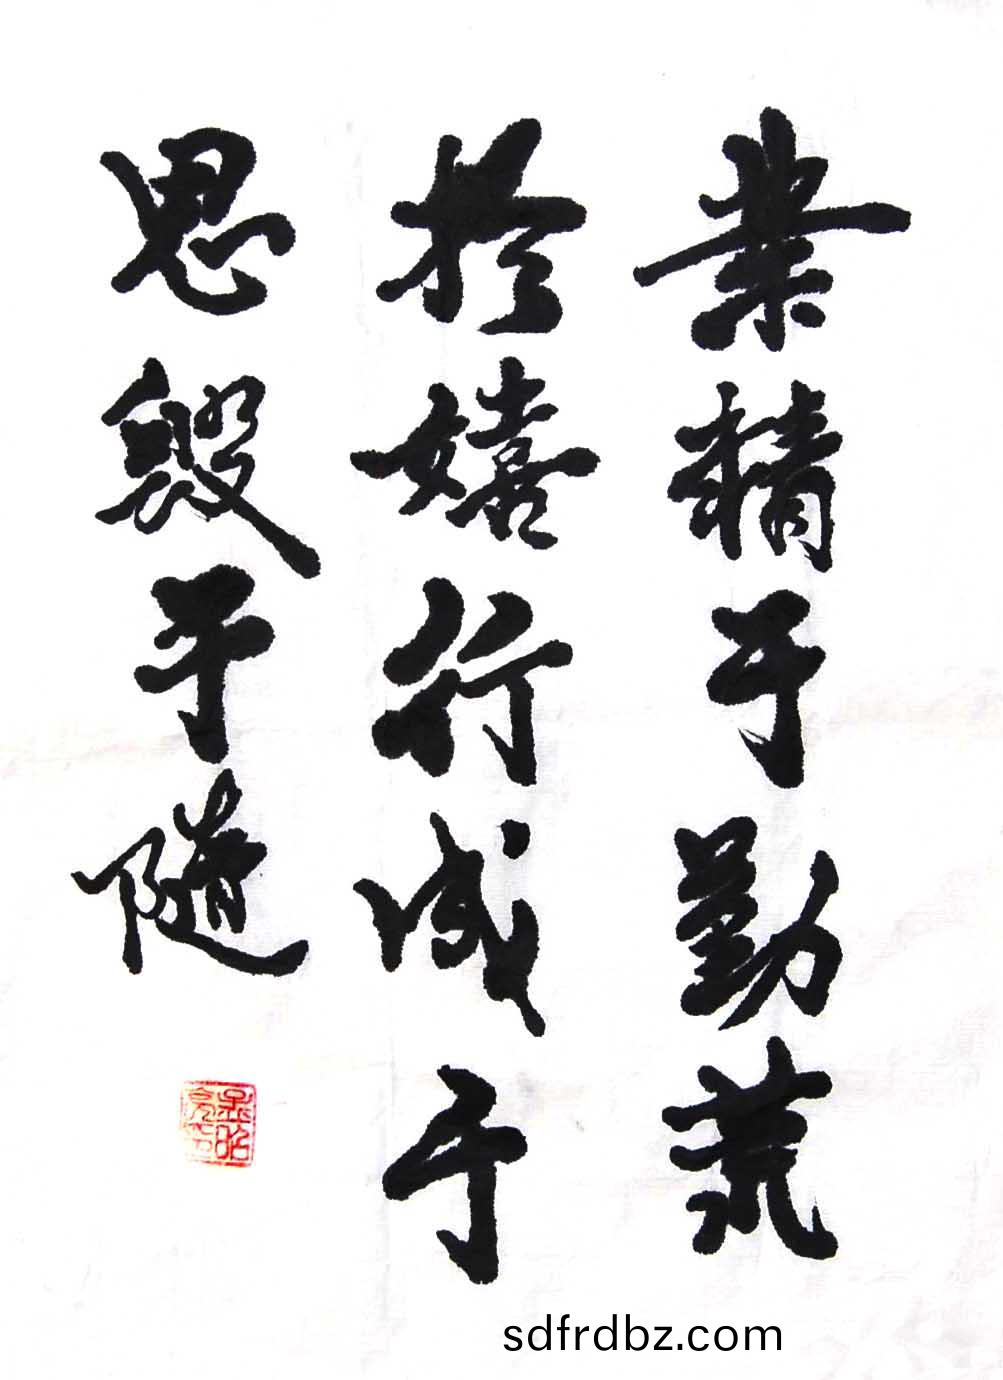 業精于勤荒
於嬉行成于
思毀于隨
sdfrdbz.com